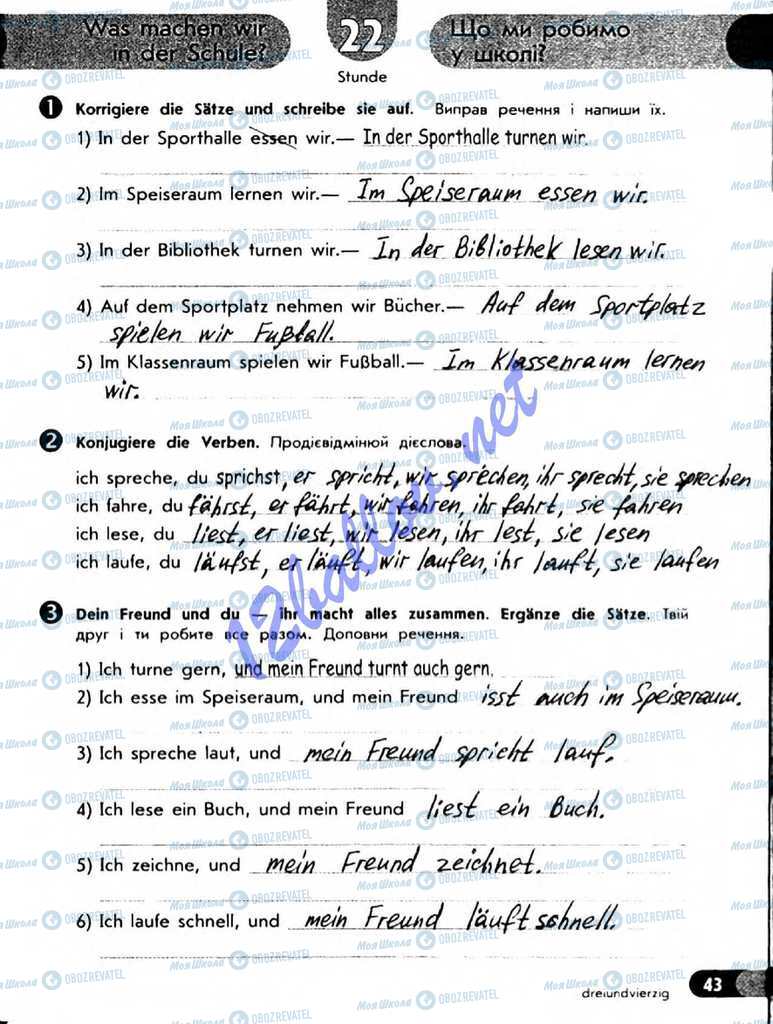 Was machen wir in der Schule?
22
Stunde
Що ми робимо у школі?
1 Korrigiere die Sätze und schreibe sie auf. Виправ речення і напиши їх.
1) In der Sporthalle essen wir.— In der Sporthalle turnen wir.
2) Im Speiseraum lernen wir.— Im Speiseraum essen wir.
3) In der Bibliothek turnen wir.— In der Bibliothek lesen wir.
4) Auf dem Sportplatz nehmen wir Bücher.— Auf dem Sportplatz
spielen wir Fußball.
5) Im Klassenraum spielen wir Fußball.— Im Klassenraum lernen
wir.
2 Konjugiere die Verben. Продієвідмінюй дієслова.
ich spreche, du sprichst, er spricht, wir sprechen, ihr sprecht, sie sprechen
ich fahre, du fährst, er fährt, wir fahren, ihr fahrt, sie fahren
ich lese, du liest, er liest, wir lesen, ihr lest, sie lesen
ich laufe, du läufst, er läuft, wir laufen, ihr lauft, sie laufen
3 Dein Freund und du — ihr macht alles zusammen. Ergänze die Sätze. Твій
друг і ти робите все разом. Доповни речення.
1) Ich turne gern, und mein Freund turnt auch gern.
2) Ich esse im Speiseraum, und mein Freund isst auch im Speiseraum.
3) Ich spreche laut, und mein Freund spricht lauf.
4) Ich lese ein Buch, und mein Freund liest ein Buch.
5) Ich zeichne, und mein Freund zeichnet.
6) Ich laufe schnell, und mein Freund läuft schnell.
dreiundvierzig
43
12ballov.net
Моя Школа OBOZREVATEL